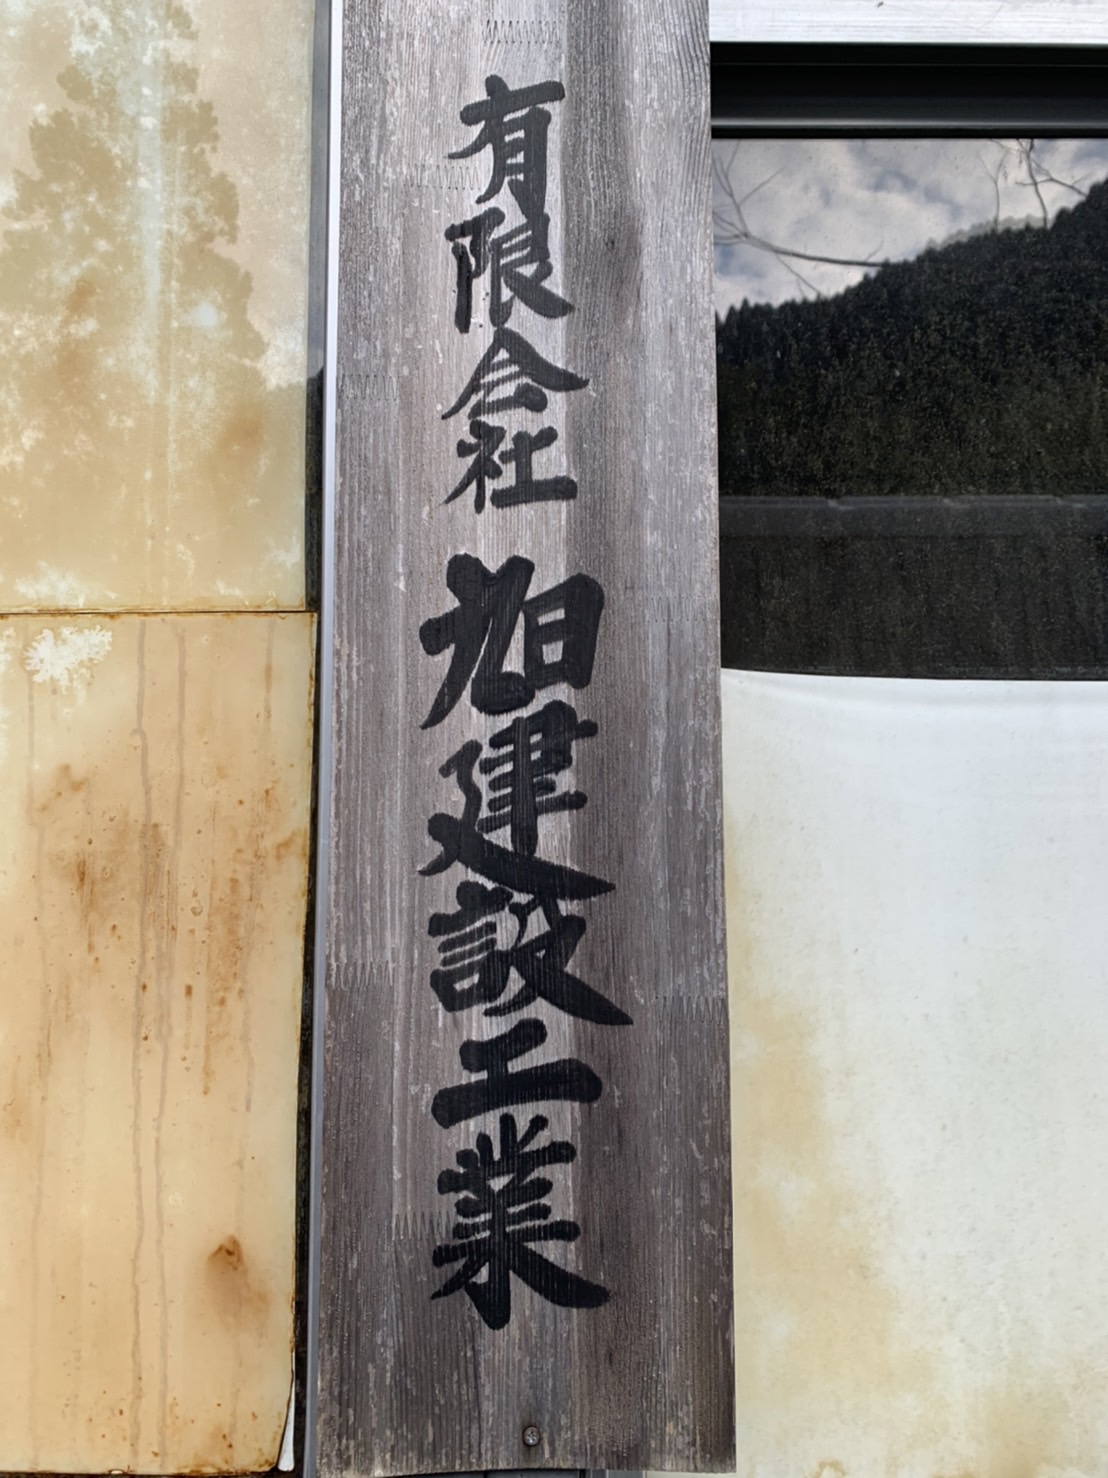 有限会社 旭建設工業